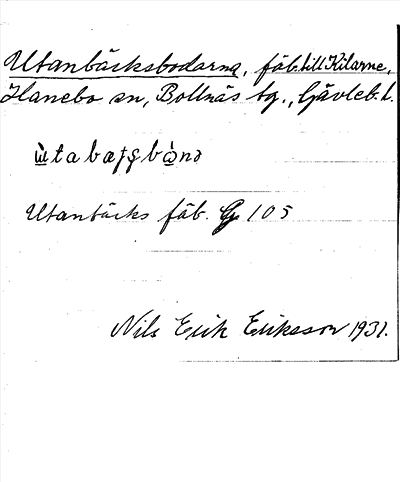 Utanbäcksbodarna, fäb. till Kilarne,
Hanebo sn, Bollnäs tg., Gävleb. l.
Utanbäcks fäb. G 105
Nils Erik Eriksson 1931.